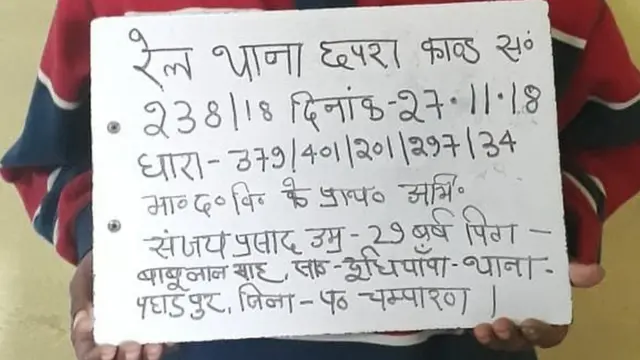 रेल थाना छपरा काण्ड सं०
238/18 दिनांक-27.11.18
धारा-379/401/201/297/34
भा०द०वि० के प्राथ० अभि०
संजय प्रसाद उम्र-29 वर्ष पिता-
बाबुलाल साह, सा०-दुधिपाँपा-थाना-
पहाड़पुर, जिला-प० चम्पारण।